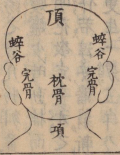 頂
蟀谷
蟀谷
完骨
枕骨
完骨
項